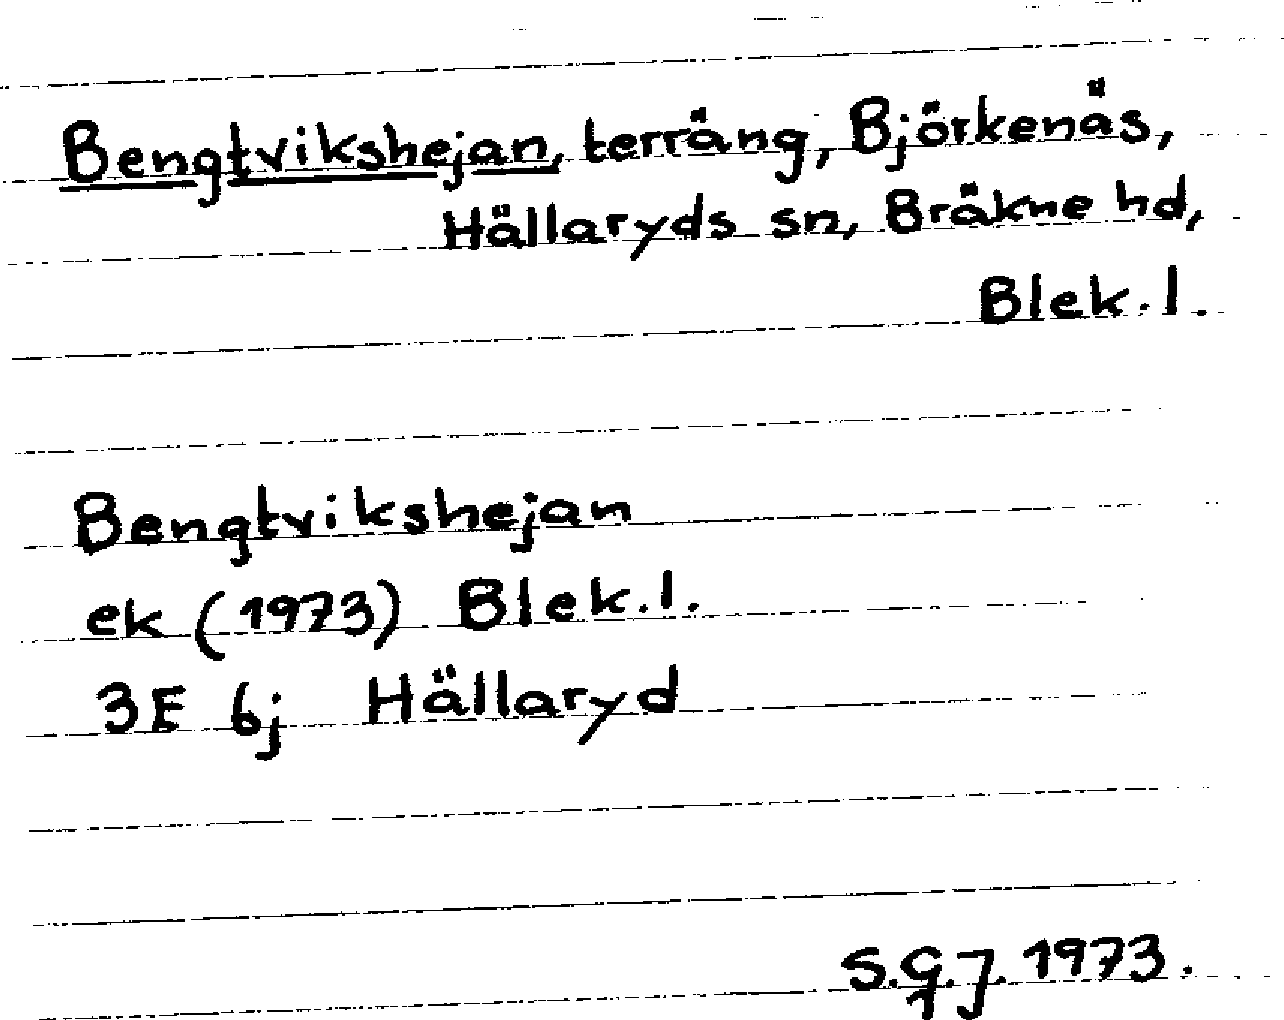 Bengtvikshejan, terräng, Björkenäs,
Hällaryds sn, Bräkne hd,
Blek. l.
Bengtvikshejan
ek (1973) Blek. l.
3E 6j Hällaryd
S.G.J. 1973.